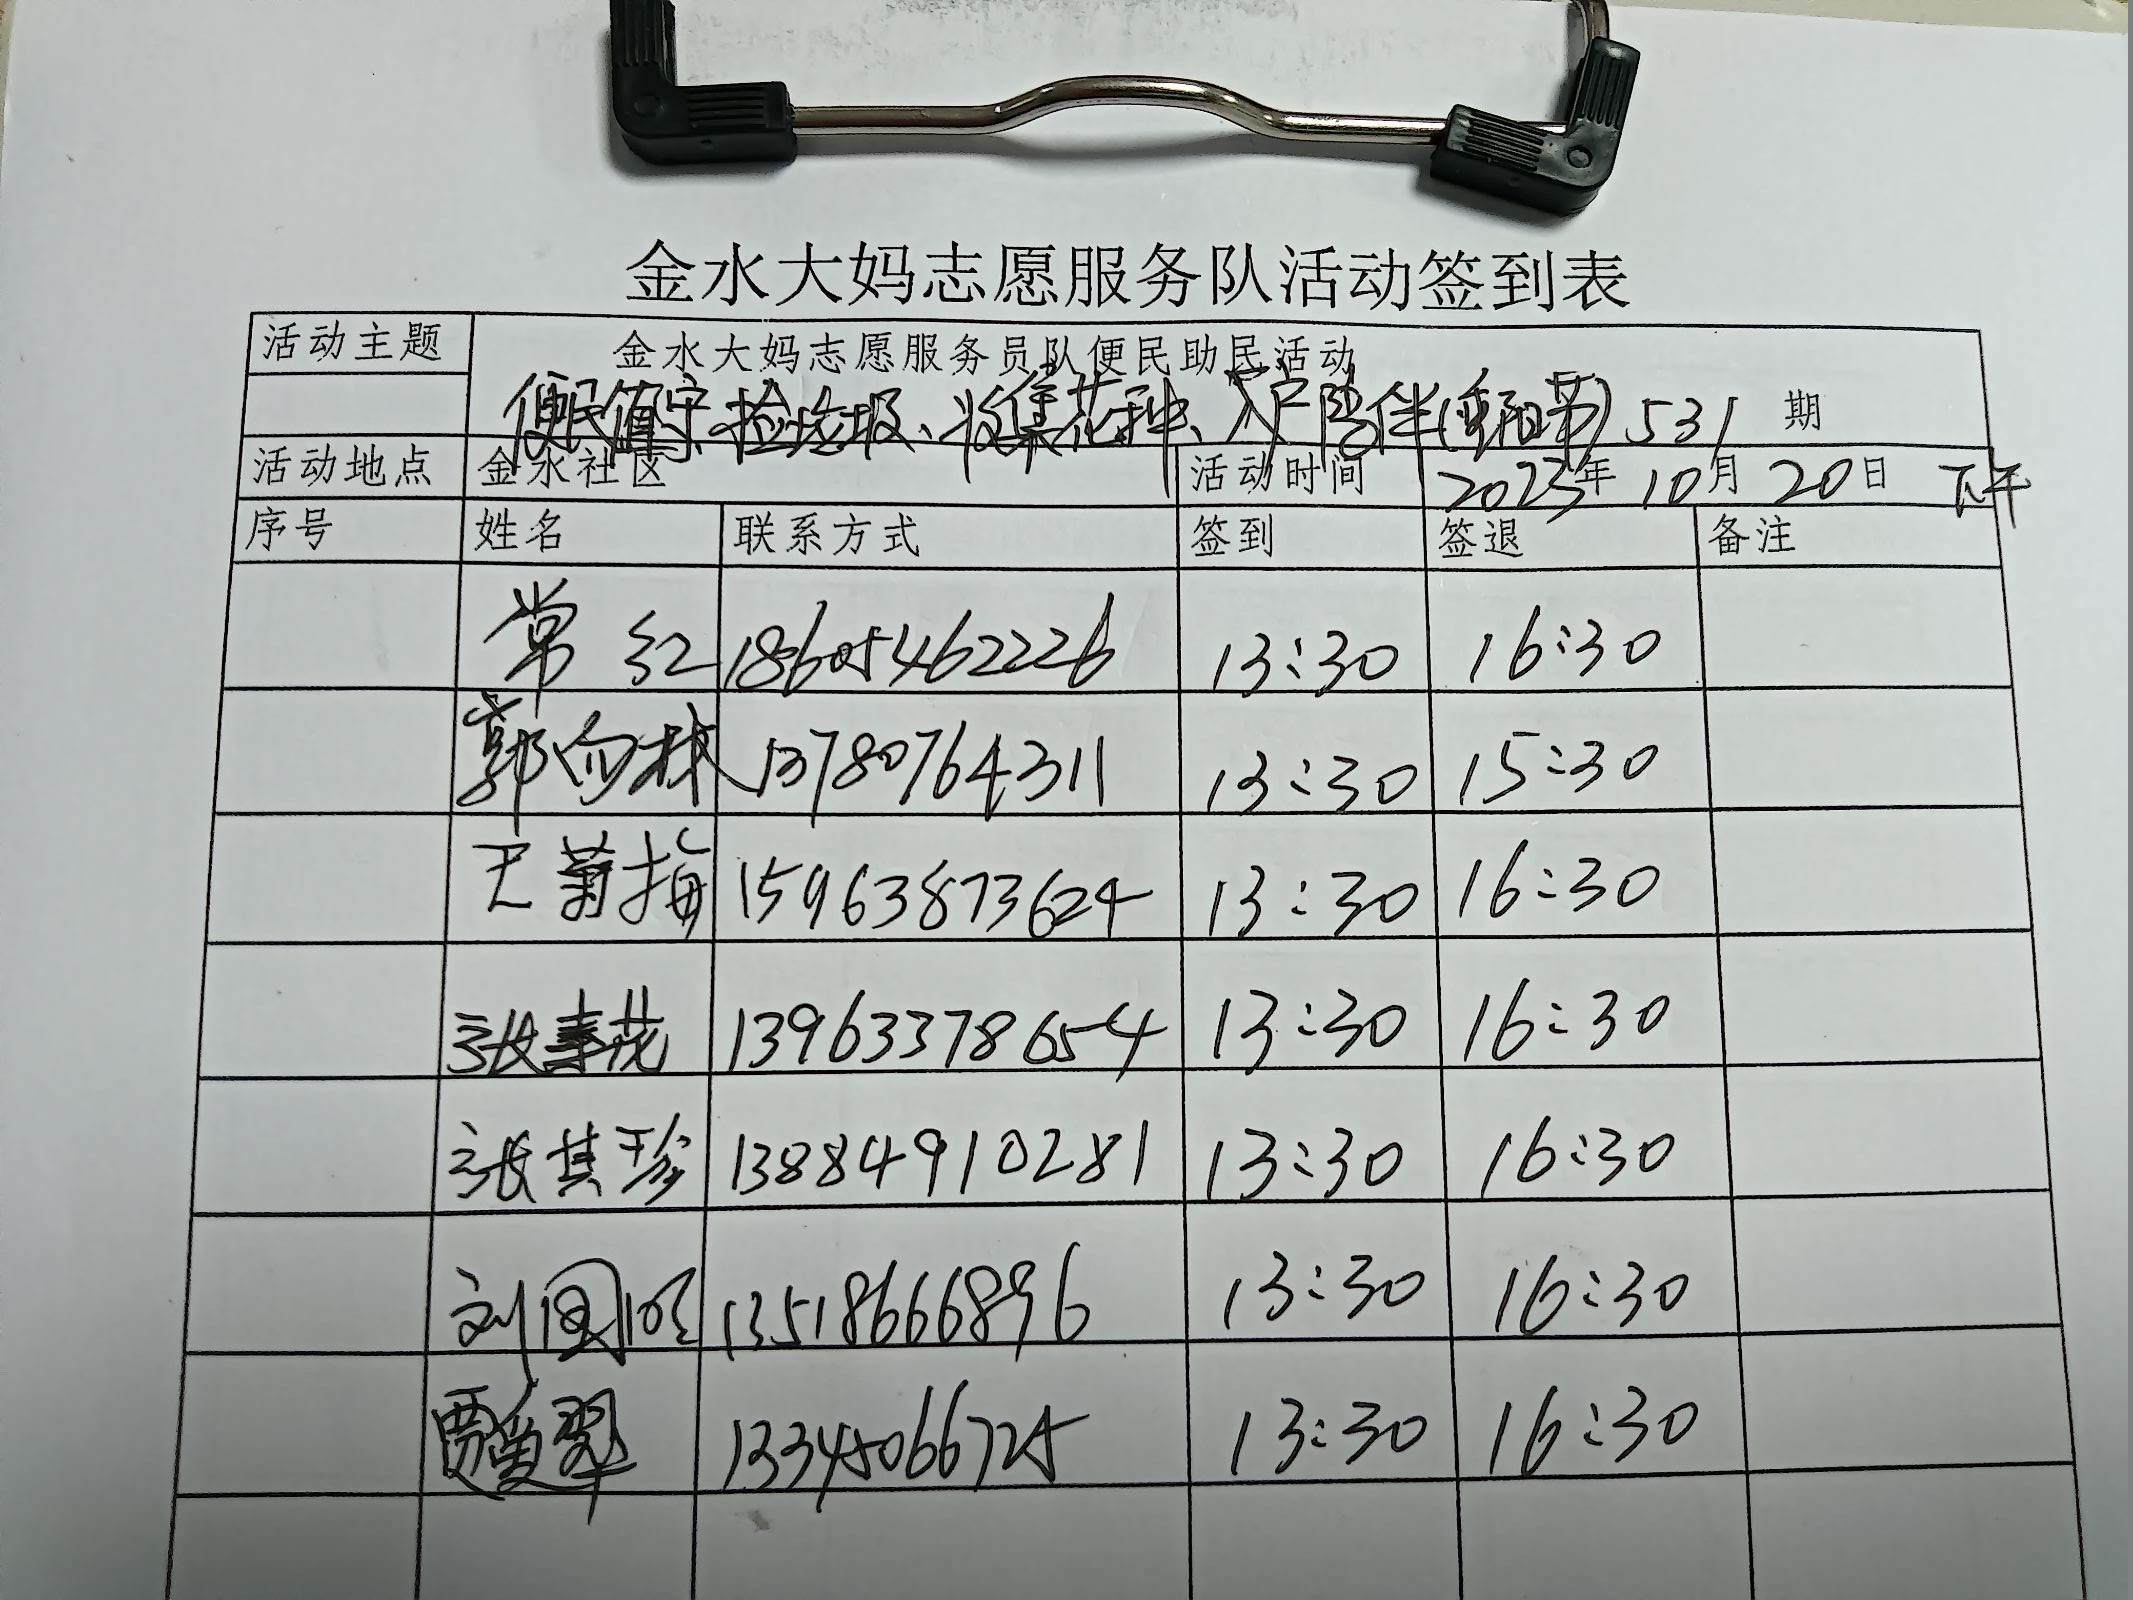 金水大妈志愿服务队活动签到表
活动主题 金水大妈志愿服务员队便民助民活动
便民值守、捡垃圾、收集花种、入户陪伴(重阳节) 531 期
活动地点 金水社区 活动时间 2023年 10月 20日 下午
序号 姓名 联系方式 签到 签退 备注
常红 18605462226 13:30 16:30
郭向林 13780764311 13:30 15:30
王菊梅 15963873624 13:30 16:30
张春花 13963378654 13:30 16:30
张其珍 13884910281 13:30 16:30
刘国 13518666896 13:30 16:30
贾爱翠 13345066725 13:30 16:30